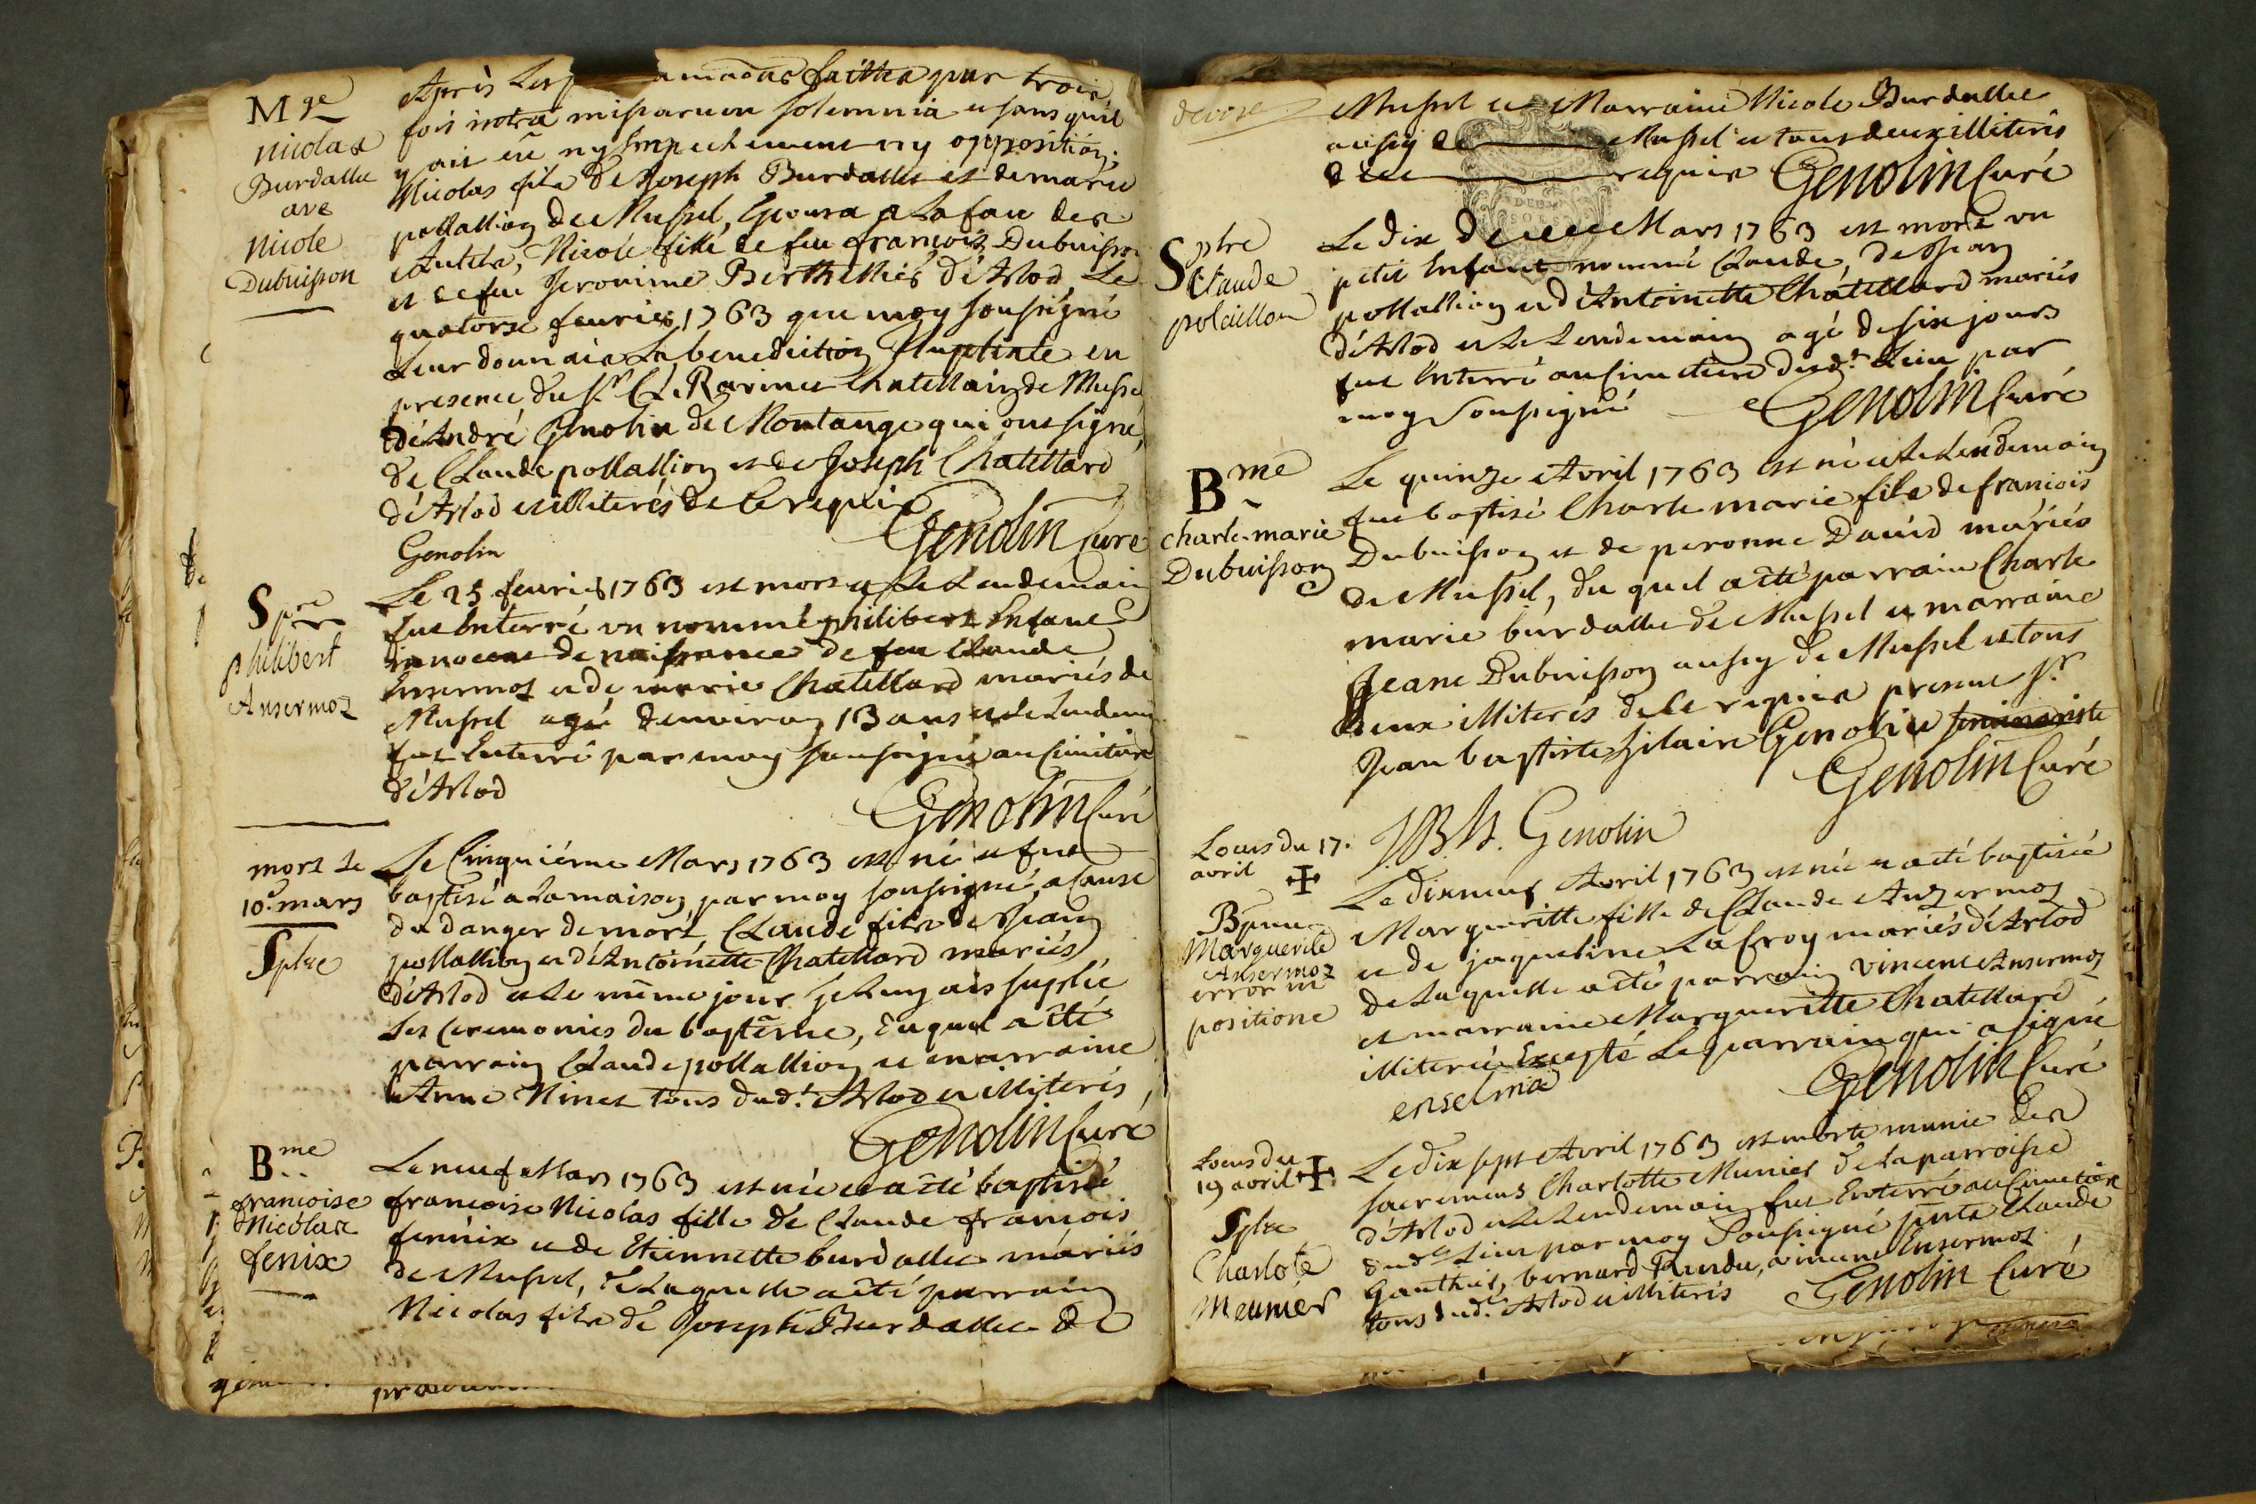 Mge
nicolas
Burdallet
ave
nicole
Dubuisson
Après Les faittes par trois
fois intra missarum solemnia et sans qu'il
y ait eü ny Empechement ny opposition,
Nicolas fils de Joseph Burdallet et de marie
pollallion de Mussel, Epousa a La face des
Autels, Nicole fille de feu françois Dubuisson
et de feu Jeronime Berthellier d'Arlod, Le
quatorse feurier 1763 que moy soussigné
Leur donnais La benediction Nuptiale en
presence du sr Cl. Ravinet Chatellain de Mussel
d'André Genolin de Montange qui ont signé,
de Claude pollallion et de Joseph Chatellard
d'Arlod et illiterés de ce requis
Genolin Curé
Genolin
Spre
philibert
Ansermoz
Le 25 feurier 1763 est mort et Le Lendemain
fut Enterré un nommé philibert Enfant
innocent de naissance de feu Claude
Ensermoz et de marie Chatellard mariés de
Mussel agé d'environ 13 ans et Le Lendem
fut Enterré par moy soussigné au Cimitiere
d'Arlod
Genolin Curé
mort Le
10e mars
Splre
Le Cinquiéme Mars 1763 est né et fut
baptisé a La maison par moy soussigné, a Cause
du danger de mort Claude fils de Jean
pollallion et d'Antoinette Chatellard mariés
d'Arlod et Le même jour je Luy ais supplée
Les Ceremonies du baptême, Duquel a été
parrain Claude pollallion et marraine
Anne Ninet tous dudt. Arlod et illiterés,
Genolin Curé
Bme
francoise
Nicolas
fenix
Le neuf Mars 1763 est née et a été baptisée
francoise Nicolas fille de Claude francois
fennix et de Etiennette burdallet mariés
de Mussel, de Laquelle a été parrain
Nicolas fils de Joseph Burdallet de
Mussel et Marraine Nicole Burdallet
aussy de Mussel et tous deux illiteris
de ce requis Genolin Curé
Sptre
Claude
polaillon
Le dix Mars 1763 est mort un
petit Enfant nommé Claude, de Jean
pollallion et d'Antoinette Chatellard mariés
d'Arlod et Le Lendemain agé de six jours
fut Enterré au Cimetiere dudt. Lieu par
moy soussigné Genolin Curé
Bme
charle-marie
Dubuisson
Le quinze Avril 1763 est né et Le Lendemain
fut baptisé Charle marie fils de francois
Dubuisson et de peronne David mariés
de Mussel, du quel a été parrain Charle
marie burdallet de Mussel et marraine
Jeane Dubuisson aussy de Mussel et tous
deux illiterés de ce requis presens sr
Jean baptiste hilaire Genolin seminariste
Genolin Curé
J.B.h. Genolin
Locus du 17.
avril ✠
Bpme
Marguerite
Ansermoz
error in
positione
Le dixneuf Avril 1763 est née et a été baptisée
Margueritte fille de Claude Anzermoz
et de jaqueline Lafroy mariés d'Arlod
de Laquelle a été parrain vincent Ansermoz
et marraine Marguerîtte Chatellard
illiterée Excepté Le parrain qui a signé
enselma Genolin Curé
Locus du
19 avril ✠
Splre
Charlote
Meunier
Le dix sept Avril 1763 est morte munie des
sacremens Charlotte Munier de La parroisse
d'Arlod et Le Lendemain fut Enterré au Cimetiere
dudt Lieu par moy Soussigné Claude
Gauthier, bernard vincent Ensermoz
tous dudt. Arlod et illiteris Genolin Curé